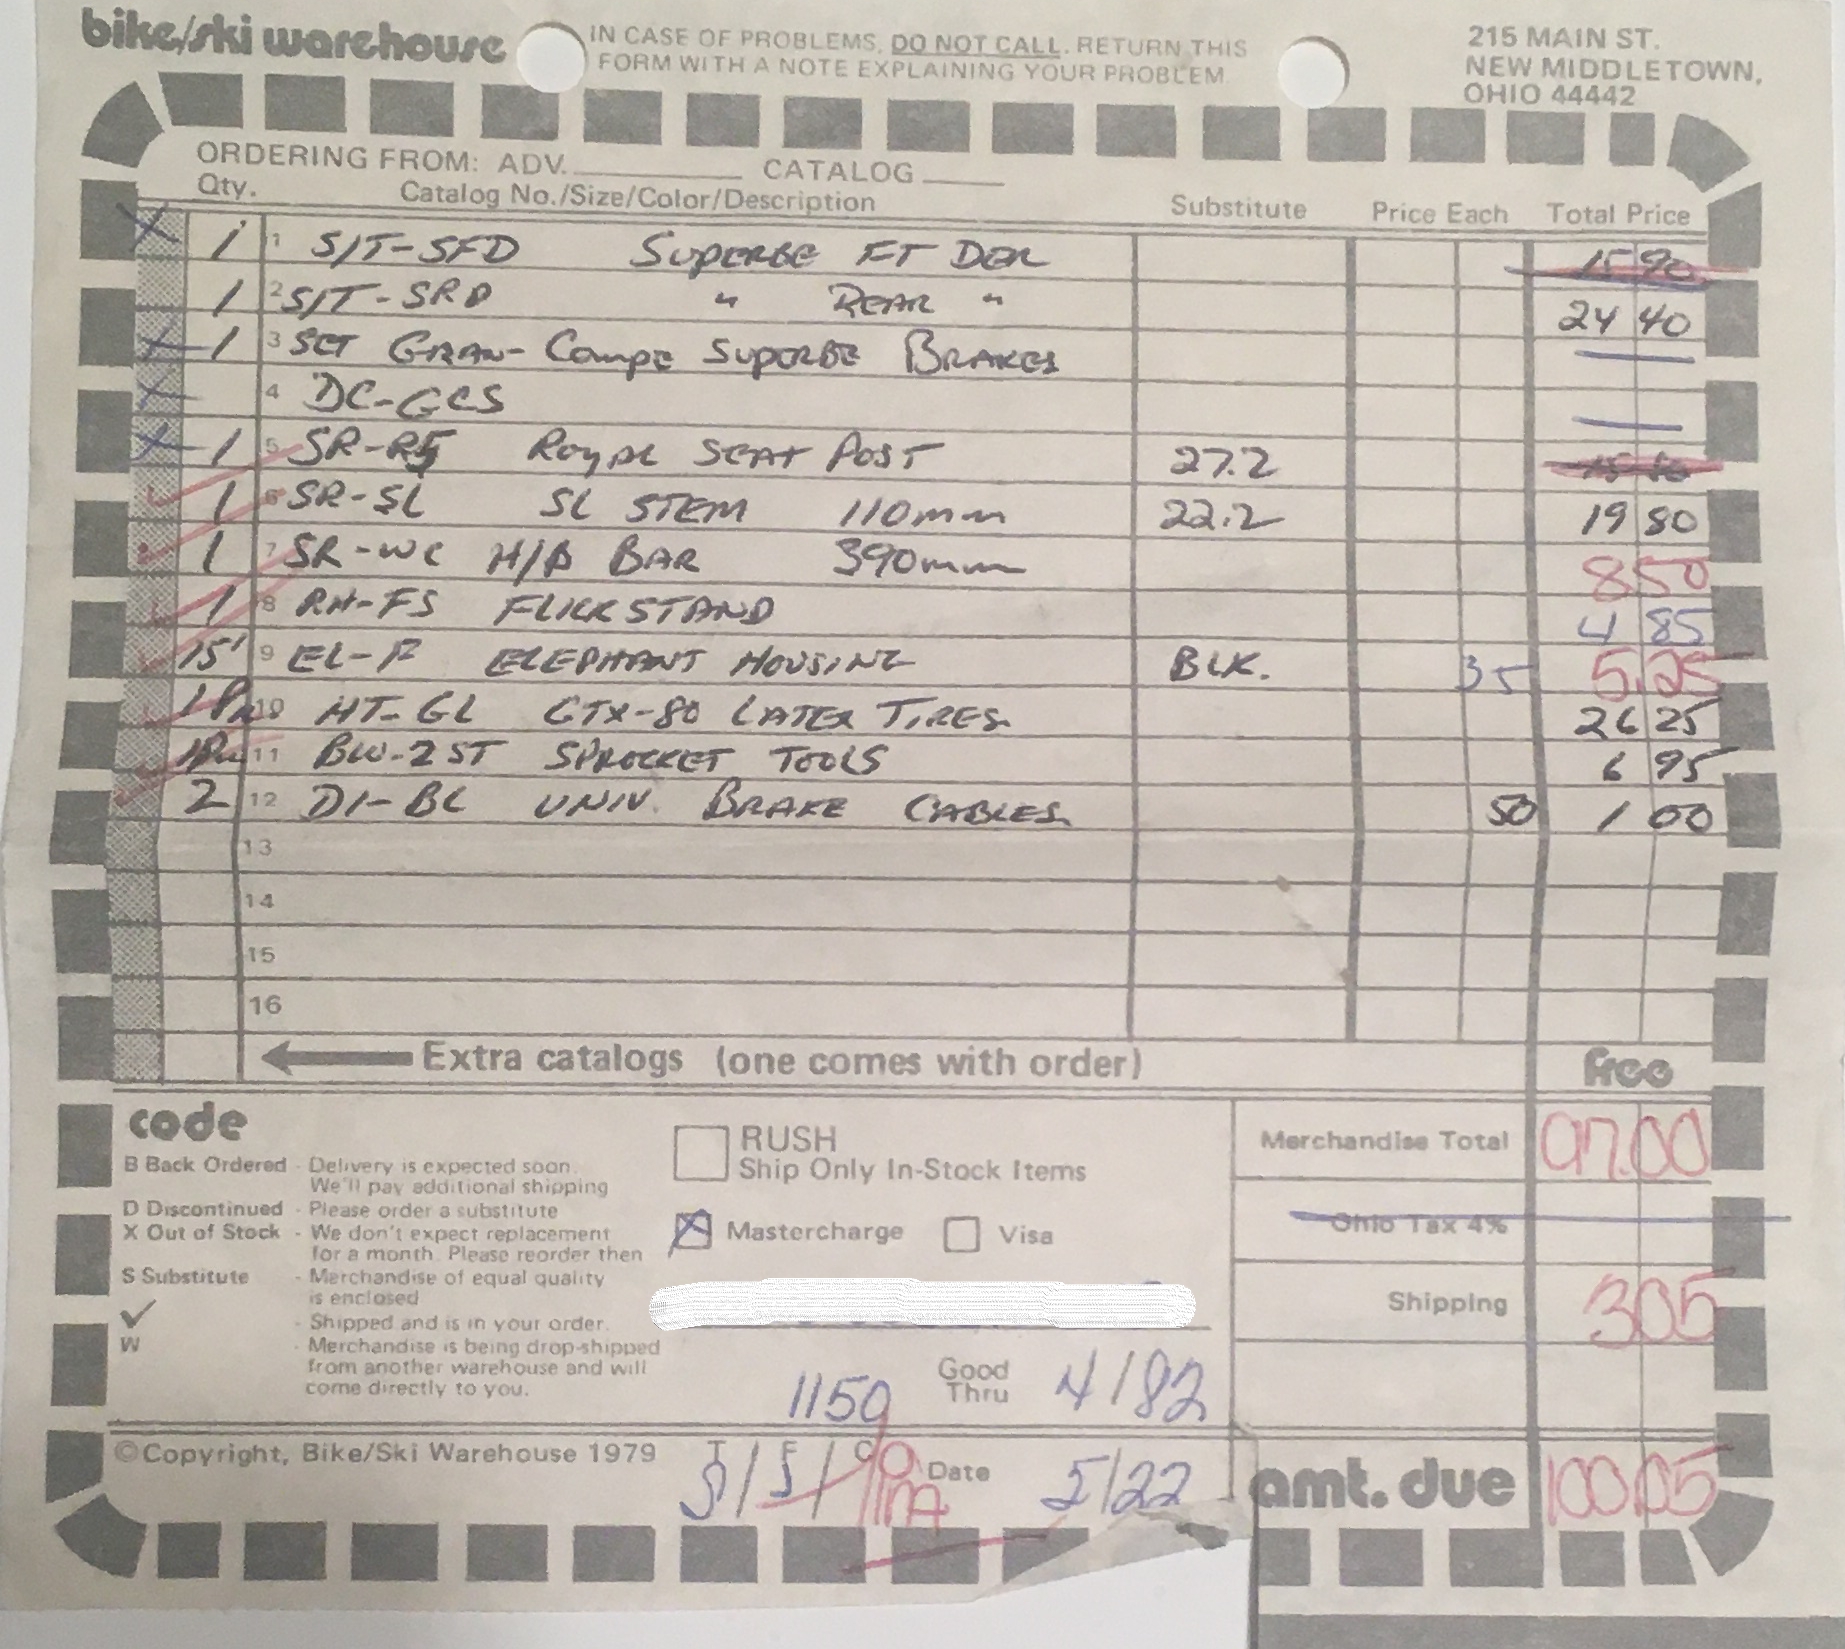 bike/ski warehouse
IN CASE OF PROBLEMS, DO NOT CALL. RETURN THIS
FORM WITH A NOTE EXPLAINING YOUR PROBLEM.
215 MAIN ST.
NEW MIDDLETOWN,
OHIO 44442
ORDERING FROM: ADV. CATALOG
Qty. Catalog No./Size/Color/Description Substitute Price Each Total Price
X 1 1 S/T-SFD SUPERBE FT DER 15 90
1 2 S/T-SRD " REAR " 24 40
X 1 3 SET GRAN-COMPE SUPERBE BRAKES —
X 4 DC-GCS —
X 1 5 SR-R5 ROYAL SEAT POST 27.2
✓ 1 6 SR-SL SL STEM 110mm 22.2 19 80
✓ 1 7 SR-WC H/B BAR 390mm 8 50
✓ 1 8 RH-FS FLICKSTAND 4 85
✓ 15' 9 EL-F ELEPHANT HOUSING BLK. 35 5.25
✓ 1 PR 10 HT-GL GTX-80 LATEX TIRES 26 25
✓ 1 PR 11 BW-2ST SPROCKET TOOLS 6 95
✓ 2 12 DI-BC UNIV. BRAKE CABLES 50 1 00
13
14
15
16
Extra catalogs (one comes with order) free
code
B Back Ordered - Delivery is expected soon.
We'll pay additional shipping
D Discontinued - Please order a substitute
X Out of Stock - We don't expect replacement
for a month. Please reorder then
S Substitute - Merchandise of equal quality
is enclosed
✓ - Shipped and is in your order.
W - Merchandise is being drop-shipped
from another warehouse and will
come directly to you.
RUSH
Ship Only In-Stock Items
X Mastercharge Visa
1150 Good
Thru 4/82
Merchandise Total 97.00
Ohio Tax 4%
Shipping 3 05
©Copyright, Bike/Ski Warehouse 1979
T F C
Date 5/22
amt. due 100.05